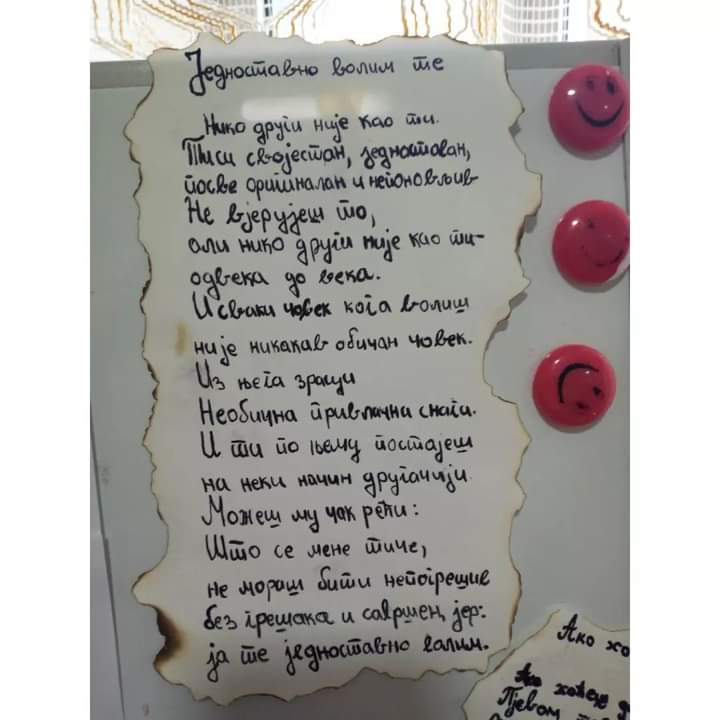 Једноставно волим те
Нико други није као ти.
Ти си својестан, једноставан,
посве оригиналан и непоновљив
Не вјерујеш то,
али нико други није као ти-
одвека до века.
И сваки човек кога волиш
није никакав обичан човек.
Из њега зрачи
Необична привлачна снага.
И ти по њему постајеш
на неки начин другачији.
Можеш му чак рећи:
Што се мене тиче,
не мораш бити непогрешив
без грешака и савршен, јер:
ја те једноставно волим.
Ако хо
Ако хоћеш
Пјевом